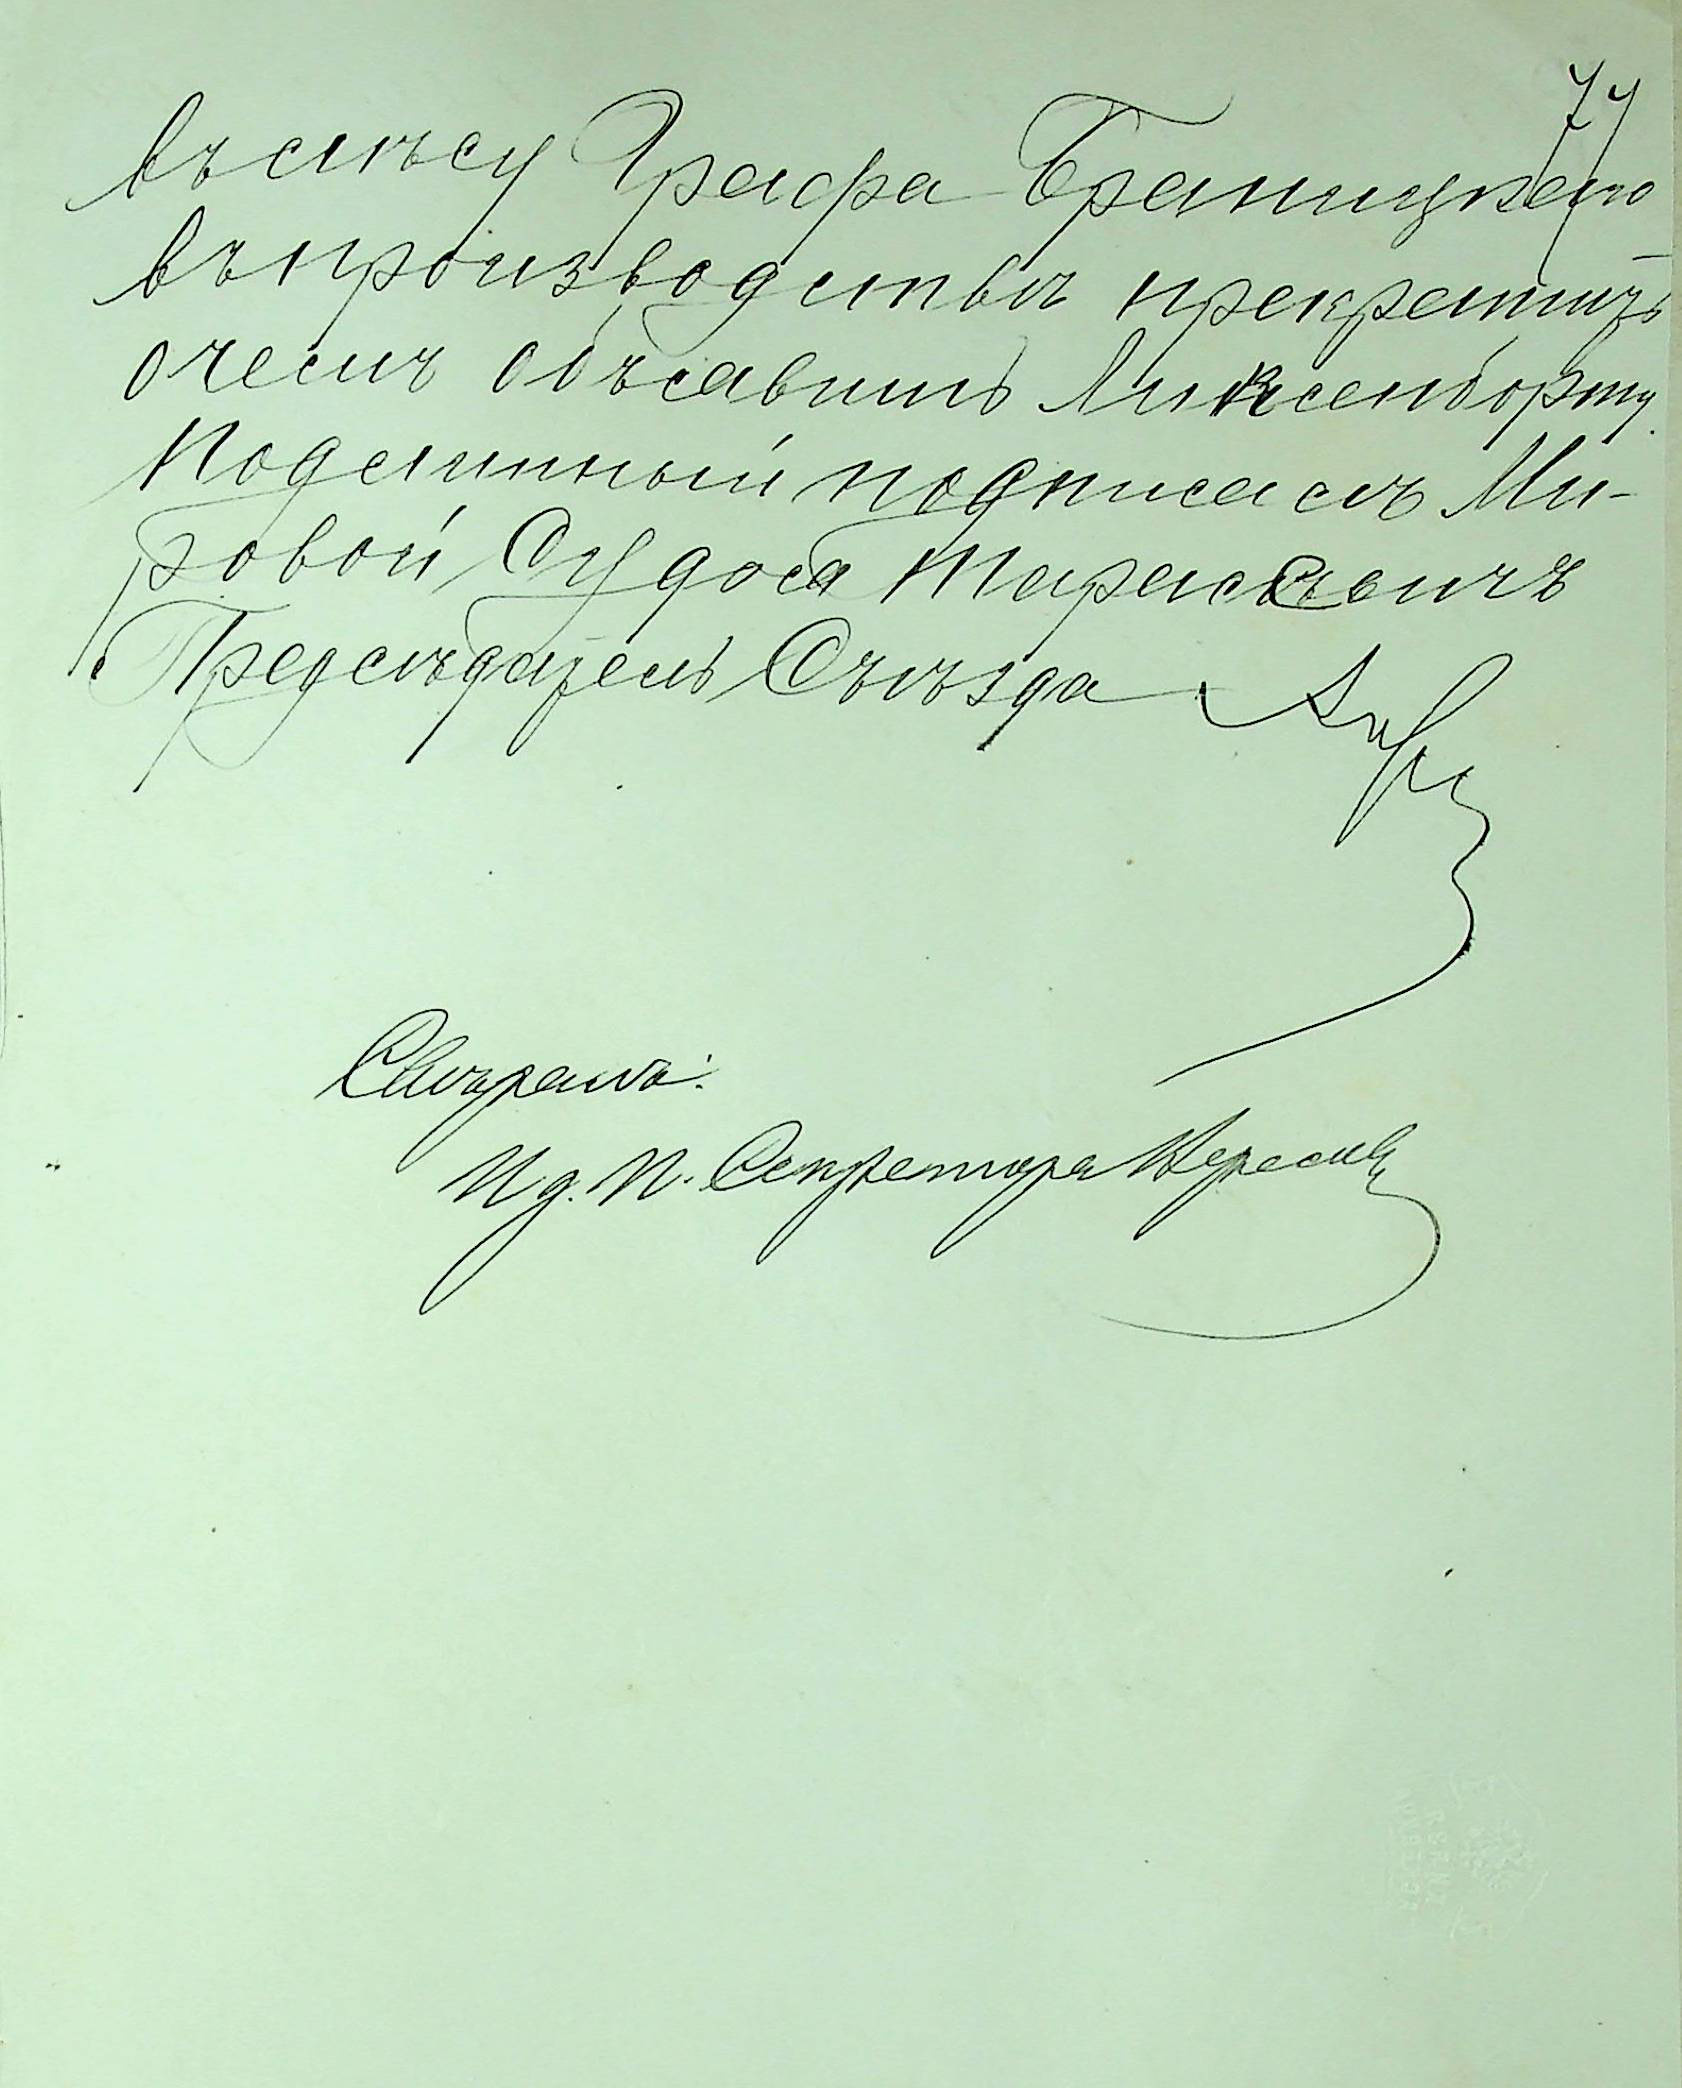 77
въ лѣсу Графа Браницкаго
въ производствѣ прекратить
о чемъ объявить Люксенборгу.
Подлинный подписалъ Ми-
ровой Судья Тарасевичъ
Предсѣдатель Съѣзда
Свѣрялъ:
И. д. П. Секретаря